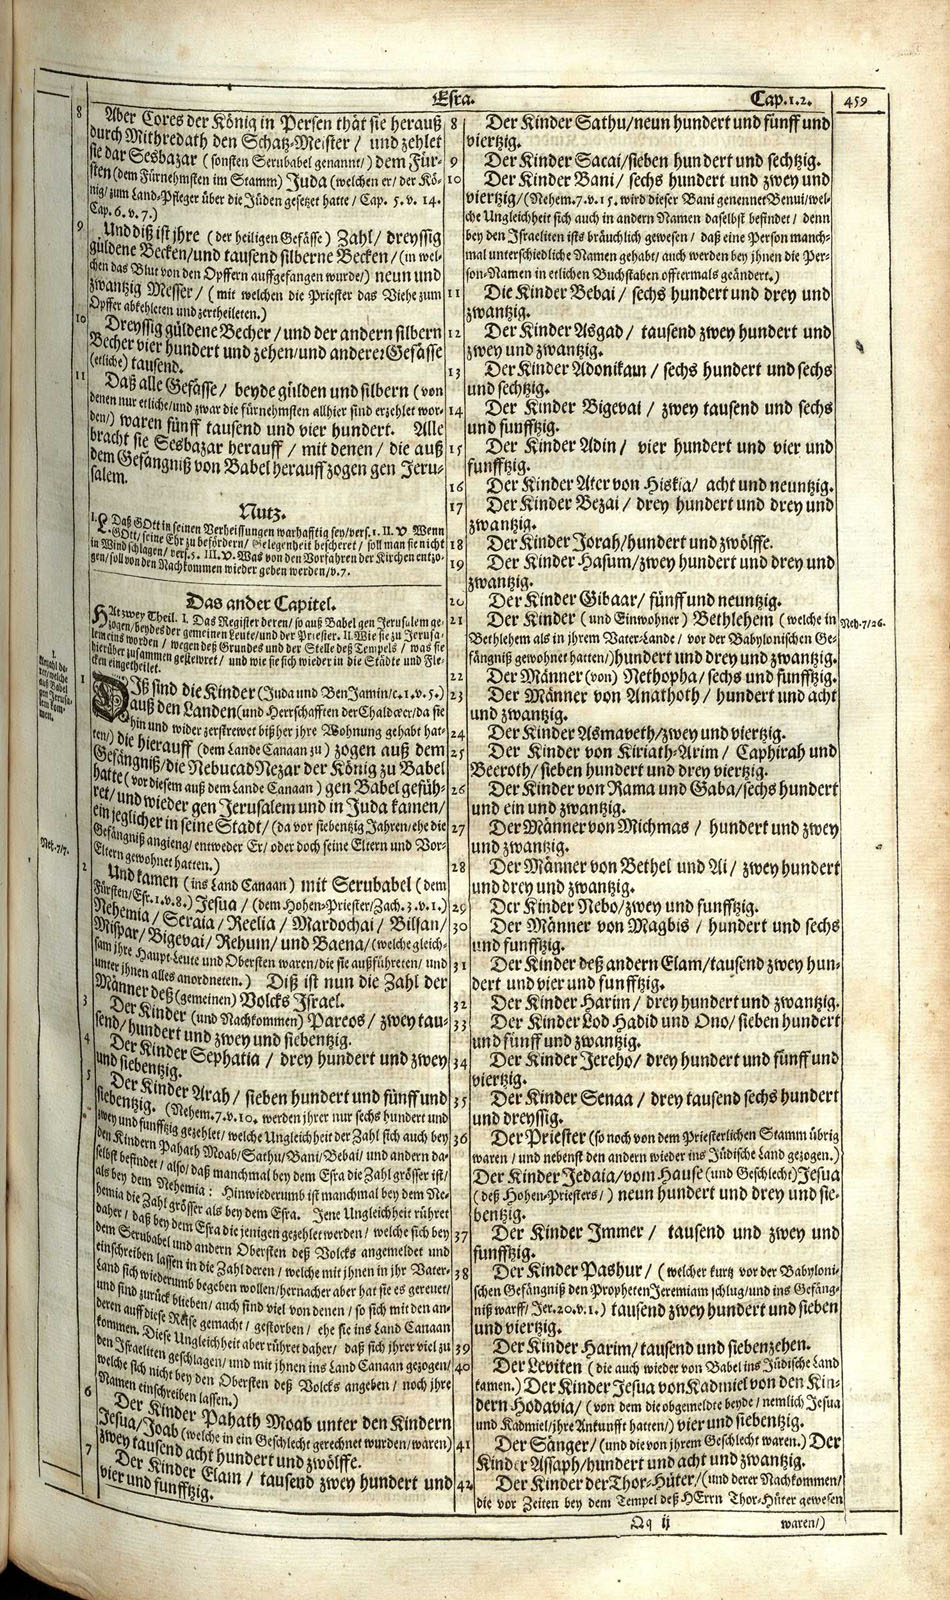 Esra.
Cap. 1. 2.
459
8 Aber Cores der König in Persen thät sie herauß
durch Mithredath den Schatz-Meister / und zehlet
sie dar Sesbazar (sonsten Serubabel genannt /) dem Für-
sten (dem Fürnehmsten im Stamm) Juda (welchen er / der Kö-
nig / zum Land-Pfleger über die Jüden gesetzet hatte / Cap. 5. v. 14.
Cap. 6. v. 7.)
9 Und diß ist jhre (der heiligen Gefässe) Zahl / dreyssig
güldene Becken / und tausend silberne Becken / (in wel-
chen das Blut von den Opffern auffgefangen wurde /) neun und
zwantzig Messer / (mit welchen die Priester das Viehe zum
Opffer abkehleten und zertheileten.)
10 Dreyssig güldene Becher / und der andern silbern
Becher vier hundert und zehen / und anderer Gefässe
(etliche) tausend.
11 Daß alle Gefässe / beyde gülden und silbern (von
denen nur etliche / und zwar die fürnehmsten allhier sind erzehlet wor-
den /) waren fünff tausend und vier hundert. Alle
bracht sie Sesbazar herauff / mit denen / die auß
dem Gefängniß von Babel herauff zogen gen Jeru-
salem.
Nutz.
I. Daß GOtt in seinen Verheissungen warhafftig sey / vers. 1. II. V Wenn
GOtt / seine Ehr zu befördern / Gelegenheit bescheret / soll man sie nicht
in Wind schlagen / vers. 5. III. V. Was von den Vorfahren der Kirchen entzo-
gen / soll von den Nachkommen wieder geben werden / v. 7.
Das ander Capitel.
HAt zwey Theil. I. Das Register deren / so auß Babel gen Jerusalem ge-
zogen / beydes der gemeinen Leute / und der Priester. II. Wie sie zu Jerusa-
lem eins worden / wegen deß Grundes und der Stelle deß Tempels / was sie
hierüber zusammen gesteuret / und wie sie sich wieder in die Städte und Fle-
cken eingetheilet.
1 DIß sind die Kinder (Juda und BenJamin / c. 1. v. 5.)
auß den Landen (und Herrschafften der Chaldæer / da sie
hin und wider zerstrewet bißher jhre Wohnung gehabt hat-
ten /) die hierauff (dem Lande Canaan zu) zogen auß dem
Gefängniß / die NebucadNezar der König zu Babel
hatte (vor diesem auß dem Lande Canaan) gen Babel gefüh-
ret / und wieder gen Jerusalem und in Juda kamen /
ein jeglicher in seine Stadt / (da vor siebentzig Jahren / ehe die
Gefängniß angieng / entweder Er / oder doch seine Eltern und Vor-
Eltern gewohnet hatten.)
Neh. 7/7.
2 Und kamen (ins Land Canaan) mit Serubabel (dem
Fürsten / Esr. 1. v. 8.) Jesua / (dem Hohen-Priester / Zach. 3. v. 1.)
Nehemia / Seraia / Reelia / Mardochai / Bilsan /
Mispar / Bigevai / Rehum / und Baena / (welche gleich-
sam jhre Haupt-Leute und Obersten waren / die sie außführeten / und
unter jhnen alles anordneten.) Diß ist nun die Zahl der
Männer deß (gemeinen) Volcks Israel.
3 Der Kinder (und Nachkommen) Pareos / zwey tau-
send / hundert und zwey und siebentzig.
4 Der Kinder Sephatia / drey hundert und zwey
und siebentzig.
5 Der Kinder Arah / sieben hundert und fünff und
siebentzig. (Nehem. 7. v. 10. werden jhrer nur sechs hundert und
zwey und funfftzig gezehlet / welche Ungleichheit der Zahl sich auch bey
den Kindern Pahath Moab / Sathu / Bani / Bebai / und andern da-
selbst befindet / also / daß manchmal bey dem Esra die Zahl grösser ist /
als bey dem Nehemia: Hinwiederumb ist manchmal bey dem Ne-
hemia die Zahl grösser als bey dem Esra. Jene Ungleichheit rühret
daher / daß bey dem Esra die jenigen gezehlet werden / welche sich bey
dem Serubabel und andern Obersten deß Volcks angemeldet und
einschreiben lassen in die Zahl deren / welche mit jhnen in jhr Vater-
Land sich wiederumb begeben wollen / hernacher aber hat sie es gereuet /
und sind zurück blieben / auch sind viel von denen / so sich mit den an-
deren auff diese Reise gemacht / gestorben / ehe sie ins Land Canaan
kommen. Diese Ungleichheit aber rühret daher / daß sich jhrer viel zu
den Israeliten geschlagen / und mit jhnen ins Land Canaan gezogen /
welche sich nicht bey den Obersten deß Volcks angeben / noch jhre
Namen einschreiben lassen.)
6 Der Kinder Pahath Moab unter den Kindern
Jesua / Joab (welche in ein Geschlecht gerechnet wurden / waren)
zwey tausend acht hundert und zwölffe.
7 Der Kinder Elam / tausend zwey hundert und
vier und funfftzig.
8 Der Kinder Sathu / neun hundert und fünff und
viertzig.
9 Der Kinder Sacai / sieben hundert und sechtzig.
10 Der Kinder Bani / sechs hundert und zwey und
viertzig / (Nehem. 7. v. 15. wird dieser Bani genennet Benui / wel-
che Ungleichheit sich auch in andern Namen daselbst befindet / denn
bey den Israeliten ists bräuchlich gewesen / daß eine Person manch-
mal unterschiedliche Namen gehabt / auch werden bey jhnen die Per-
son-Namen in etlichen Buchstaben offtermals geändert.)
11 Die Kinder Bebai / sechs hundert und drey und
zwantzig.
12 Der Kinder Asgad / tausend zwey hundert und
zwey und zwantzig.
13 Der Kinder Adonikam / sechs hundert und sechs
und sechtzig.
14 Der Kinder Bigevai / zwey tausend und sechs
und funfftzig.
15 Der Kinder Adin / vier hundert und vier und
funfftzig.
16 Der Kinder Ater von Hiskia / acht und neuntzig.
17 Der Kinder Bezai / drey hundert und drey und
zwantzig.
18 Der Kinder Jorah / hundert und zwölffe.
19 Der Kinder Hasum / zwey hundert und drey und
zwantzig.
20 Der Kinder Gibaar / fünff und neuntzig.
21 Der Kinder (und Einwohner) Bethlehem (welche in
Neh. 7/26.
Bethlehem als in jhrem Vater-Lande / vor der Babylonischen Ge-
fängniß gewohnet hatten /) hundert und drey und zwantzig.
22 Der Männer (von) Nethopha / sechs und funfftzig.
23 Der Männer von Anathoth / hundert und acht
und zwantzig.
24 Der Kinder Asmaveth / zwey und viertzig.
25 Der Kinder von Kiriath-Arim / Caphirah und
Beeroth / sieben hundert und drey viertzig.
26 Der Kinder von Rama und Gaba / sechs hundert
und ein und zwantzig.
27 Der Männer von Michmas / hundert und zwey
und zwantzig.
28 Der Männer von Bethel und Ai / zwey hundert
und drey und zwantzig.
29 Der Kinder Nebo / zwey und funfftzig.
30 Der Männer von Magbis / hundert und sechs
und funfftzig.
31 Der Kinder deß andern Elam / tausend zwey hun-
dert und vier und funfftzig.
32 Der Kinder Harim / drey hundert und zwantzig.
33 Der Kinder Lod Hadid und Ono / sieben hundert
und fünff und zwantzig.
34 Der Kinder Jereho / drey hundert und fünff und
viertzig.
35 Der Kinder Senaa / drey tausend sechs hundert
und dreyssig.
36 Der Priester (so noch von dem Priesterlichen Stamm übrig
waren / und nebenst den andern wieder ins Jüdische Land gezogen.)
Der Kinder Jedaia / vom Hause (und Geschlecht) Jesua
(deß Hohen-Priesters /) neun hundert und drey und sie-
bentzig.
37 Der Kinder Immer / tausend und zwey und
funfftzig.
38 Der Kinder Pashur / (welcher kurtz vor der Babyloni-
schen Gefängniß den Propheten Jeremiam schlug / und ins Gefäng-
niß warff / Jer. 20. v. 1.) tausend zwey hundert und sieben
und viertzig.
39 Der Kinder Harim / tausend und siebenzehen.
40 Der Leviten (die auch wieder von Babel ins Jüdische Land
kamen.) Der Kinder Jesua von Kadmiel von den Kin-
dern Hodavia / (von dem die obgemeldte beyde / nemlich Jesua
und Kadmiel / jhre Ankunfft hatten /) vier und siebentzig.
41 Der Sänger / (und die von jhrem Geschlecht waren.) Der
Kinder Assaph / hundert und acht und zwantzig.
42 Der Kinder der Thor-Hüter / (und derer Nachkommen /
die vor Zeiten bey dem Tempel deß HErrn Thor-Hüter gewesen
Qq ij
waren /)